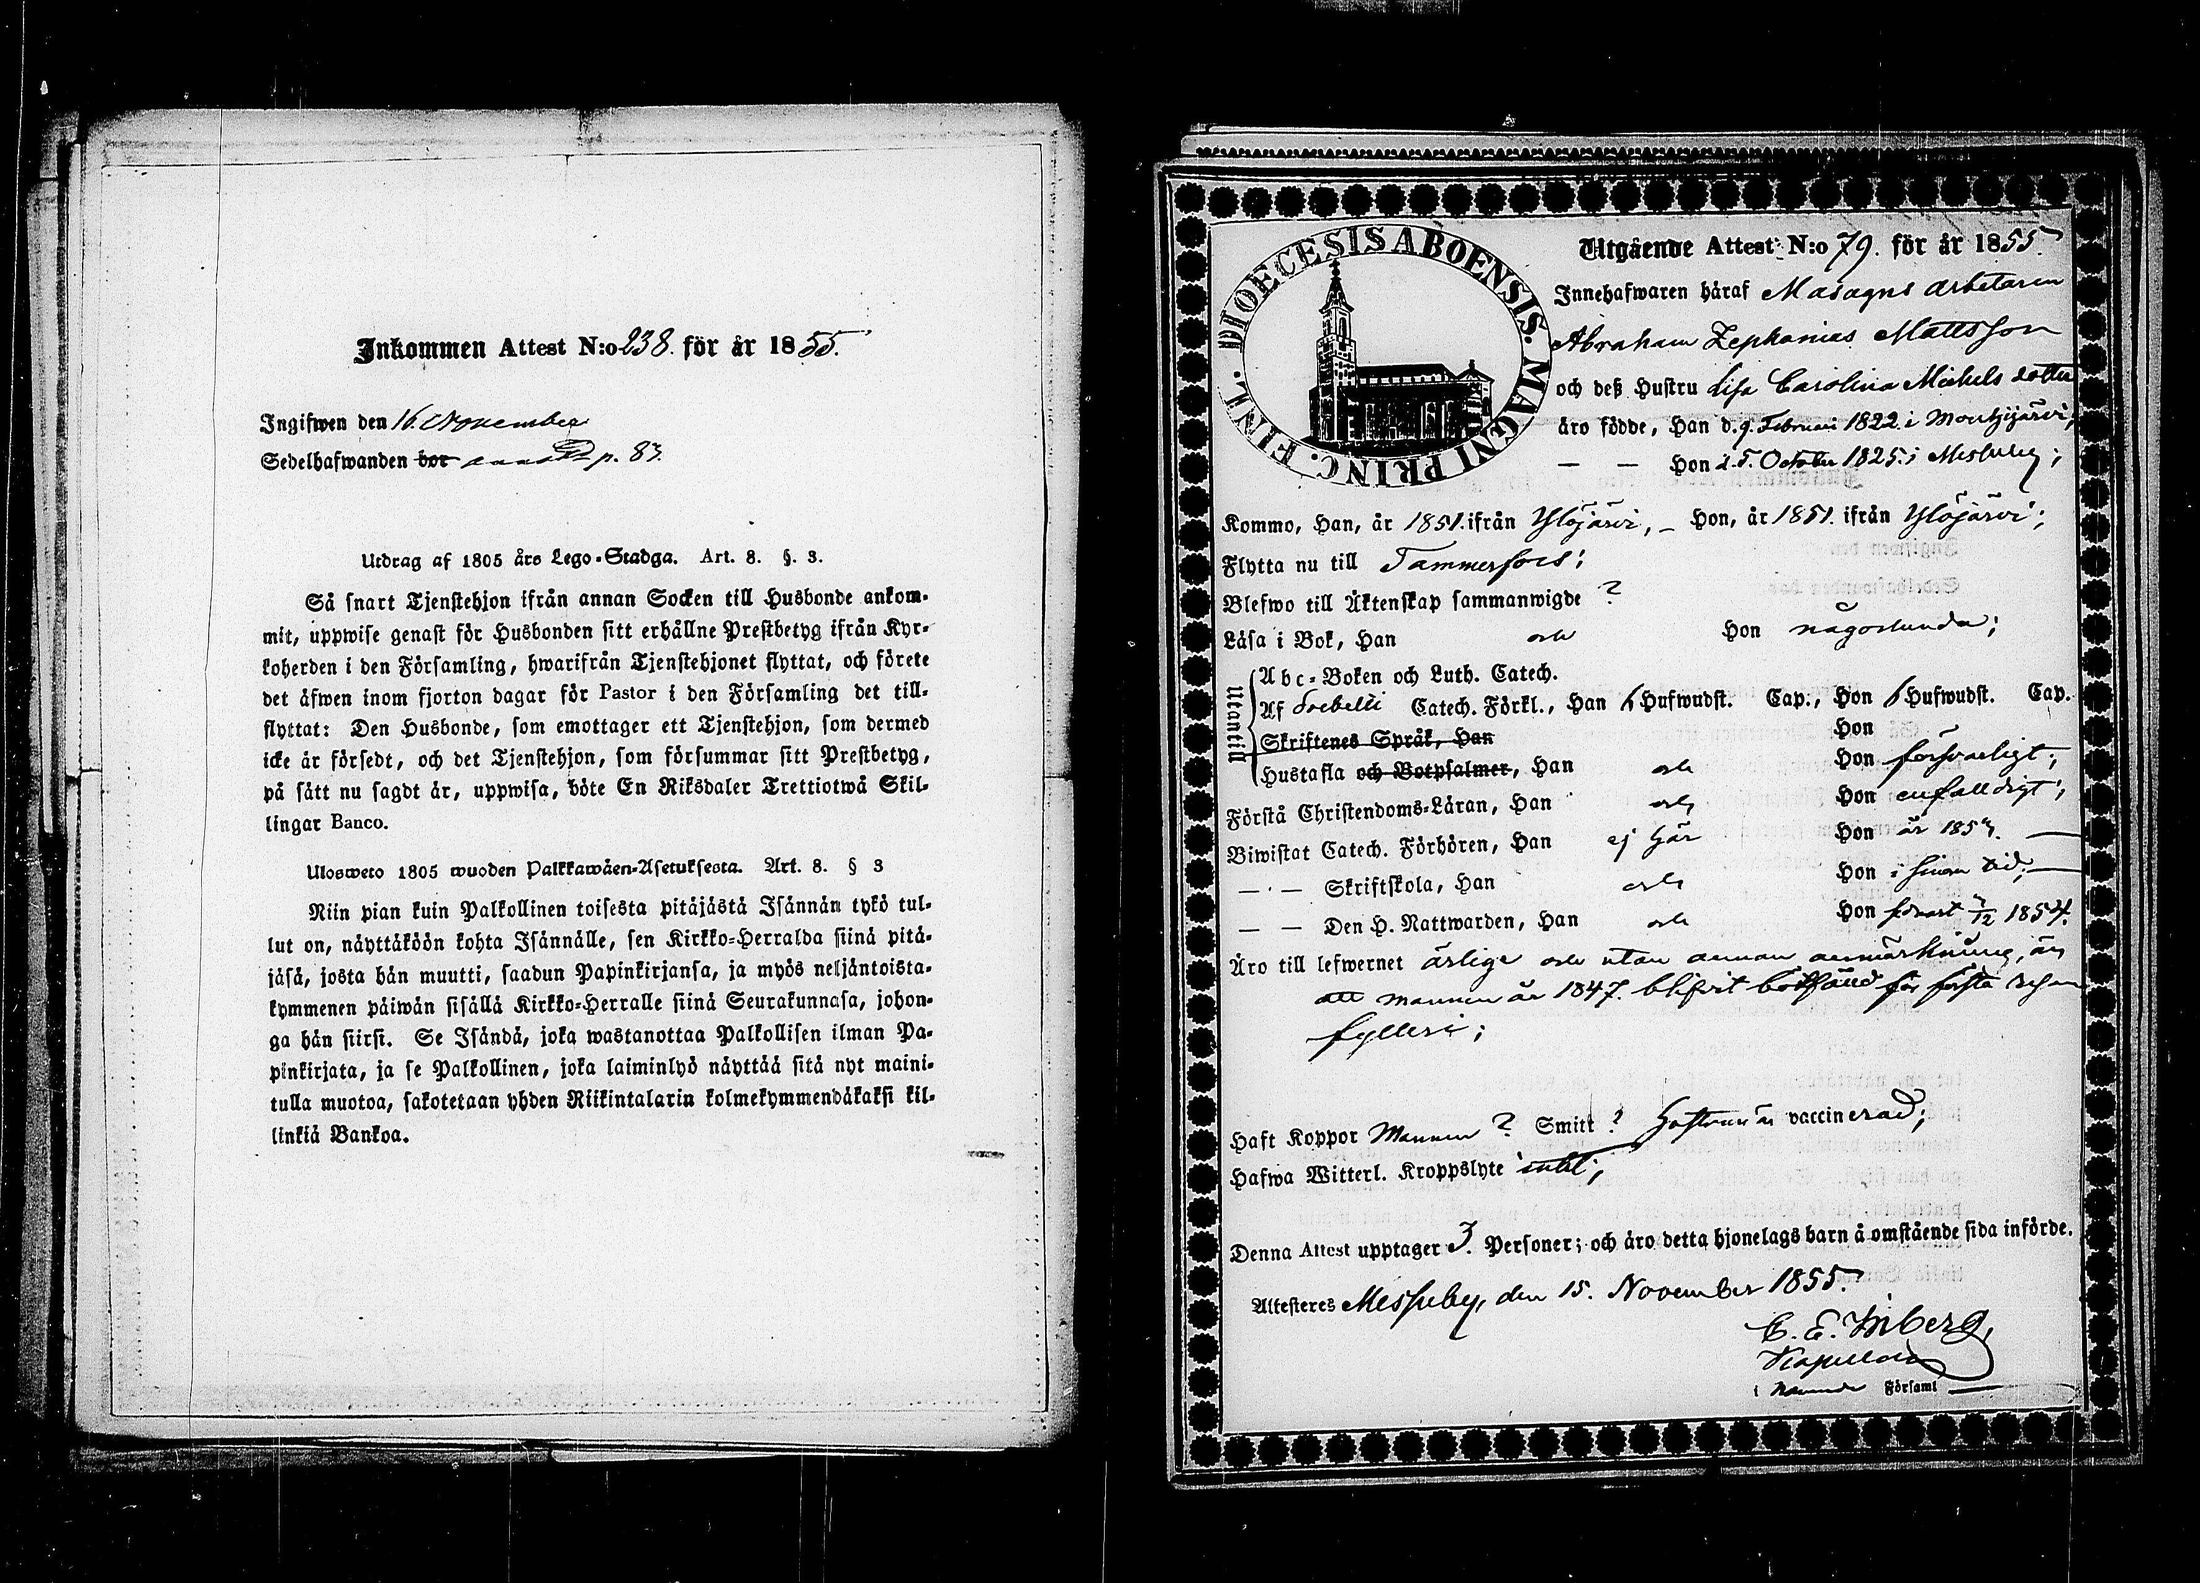 Inkommen Attest N:o 238. för år 1855.
Ingifwen den 16 November
Sedelhafwanden bor p. 83.
Utdrag af 1805 års Lego-Stadga. Art. 8. §. 3.
Så snart Tjenstehjon ifrån annan Socken till Husbonde ankom-
mit, uppwise genast för Husbonden sitt erhållne Prestbetyg ifrån Kyr-
koherden i den Församling, hwarifrån Tjenstehjonet flyttat, och förete
det äfwen inom fjorton dagar för Pastor i den Församling det till-
flyttat: Den Husbonde, som emottager ett Tjenstehjon, som dermed
icke är försedt, och det Tjenstehjon, som försummar sitt Prestbetyg,
på sätt nu sagdt är, uppwisa, böte En Riksdaler Trettiotwå Skil-
lingar Banco.
Ulosweto 1805 wuoden Palkkawäen-Asetuksesta. Art. 8. § 3
Niin pian kuin Palkollinen toisesta pitäjästä Isännän tykö tul-
lut on, näyttäköön kohta Isännälle, sen Kirkko-Herralda siinä pitä-
jäsä, josta hän muutti, saadun Papinkirjansa, ja myös neljäntoista-
kymmenen päiwän sisällä Kirkko-Herralle siinä Seurakunnasa, johon-
ga hän siirsi. Se Isändä, joka wastanottaa Palkollisen ilman Pa-
pinkirjata, ja se Palkollinen, joka laiminlyö näyttää sitä nyt maini-
tulla muotoa, sakotetaan yhden Riikintalarin kolmekymmendäkaksi kil-
linkiä Bankoa.
DIOECESIS ABOENSIS. MAGNI PRINC. FINL.
Utgående Attest N:o 79. för år 1855.
Innehafwaren häraf Masugns arbetaren
Abraham Zephanias Mattsson
och deß Hustru Lisa Carolina Michels dotter
äro födde, Han d. 9. Februari 1822. i Mouhijärvi;
— — Hon d. 5. October 1825. i Messuby;
Kommo, Han, år 1851. ifrån Ylöjärvi, – Hon, år 1851. ifrån Ylöjärvi;
Flytta nu till Tammerfors;
Blefwo till Äktenskap sammanwigde ?
Läsa i Bok, Han och Hon någorlunda;
Utantill
Abc-Boken och Luth. Catech.
Af Svebelii Catech. Förkl., Han 6 Hufwudst. Cap., Hon 6 Hufwudst. Cap.
Skriftenes Språk, Han Hon
Hustafla och Botpsalmer, Han och Hon försvarligt;
Förstå Christendoms-Läran, Han och Hon enfalldigt;
Biwistat Catech. Förhören, Han ej här Hon år 1854. —
— — Skriftskola, Han och Hon i sinom tid; —
— — Den H. Nattwarden, Han och Hon 1854.
Äro till lefwernet ärlige och utan annan anmärkning, än
att mannen år 1847. blifvit botfälld för första resan
fylleri;
Haft Koppor Mannen ? Smitt ? Hustrun är vaccinerad;
Hafwa Witterl. Kroppslyte intet;
Denna Attest upptager 3. Personer; och äro detta hjonelags barn å omstående sida införde.
Attesteres Messuby, den 15. November 1855.
C. E. Inberg,
Kapellan
i nämnde Församl